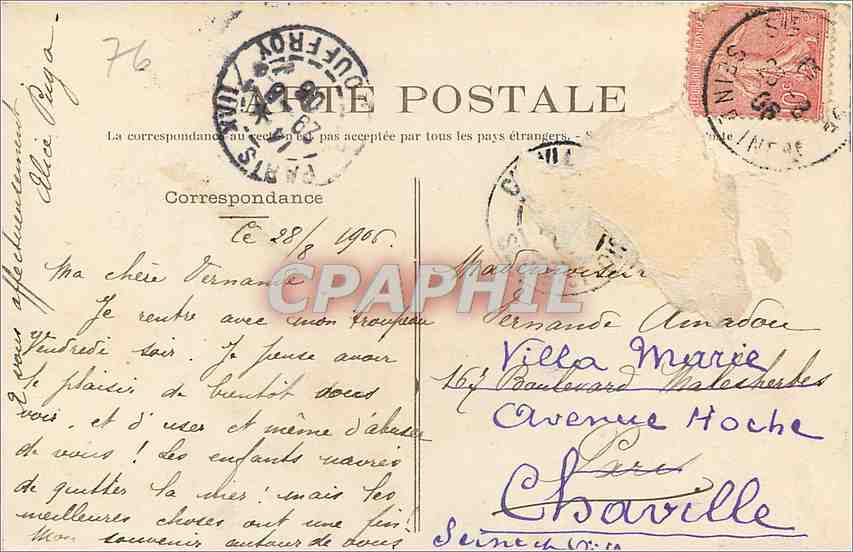 76
CARTE POSTALE
La correspondance au recto n'est pas acceptée par tous les pays étrangers.
Correspondance
Ce 28/8 1906.
Ma chère Fernande
Je rentre avec mon troupeau
Vendredi soir. Je pense avoir
le plaisir de bientôt vous
voir, et d'user et même d'abuser
de vous! Les enfants navrés
de quitter la mer! mais les
meilleures choses ont une fin!
Mon souvenir autour de vous
à vous affectueusement
Alice
Mademoiselle
Fernande Amadou
Villa Marie
167 Boulevard Malesherbes
Avenue Hoche
Paris
Chaville
Seine et Oise
CPAPHIL
PARIS XVII
JOUFFROY
29
SEINE INFRE